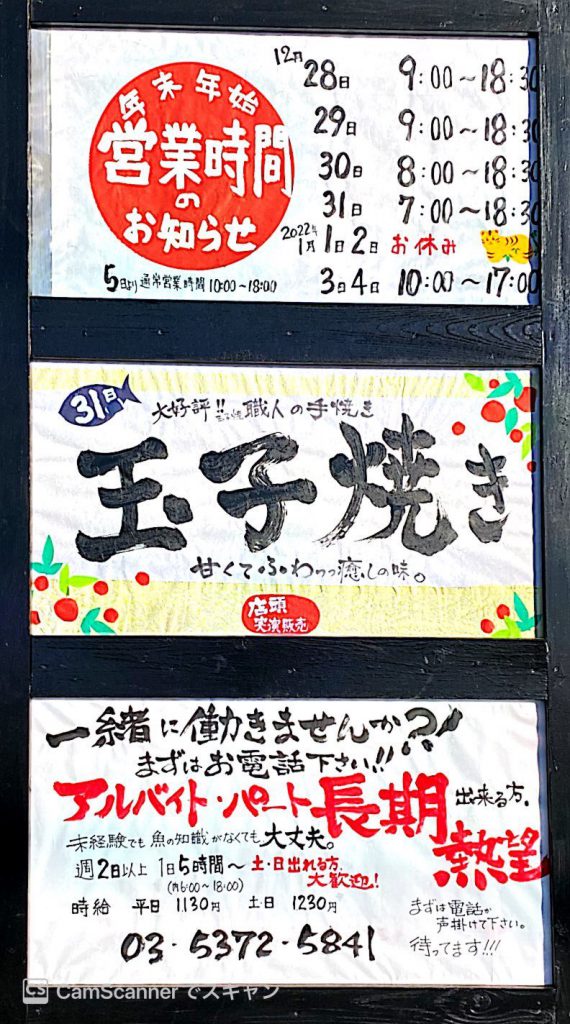 年末年始
営業時間
の
お知らせ
5日より通常営業時間10:00〜18:00
12月 28日 9:00〜18:30
29日 9:00〜18:30
30日 8:00〜18:30
31日 7:00〜18:30
2022年 1月 1日2日 お休み
3日4日 10:00〜17:00
31日
大好評!! 職人の手焼き
玉子焼き
甘くてふわっっ癒しの味。
店頭
実演販売
一緒に働きませんか?!
まずはお電話下さい!!
アルバイト・パート長期出来る方。
熱望
未経験でも魚の知識がなくても大丈夫。
週2日以上 1日5時間〜 土・日出れる方、
大歓迎!
(内6:00〜18:00)
時給 平日 1130円 土・日 1230円
03-5372-5841
まずは電話か
声掛けて下さい。
待ってます!!!
CS CamScanner でスキャン